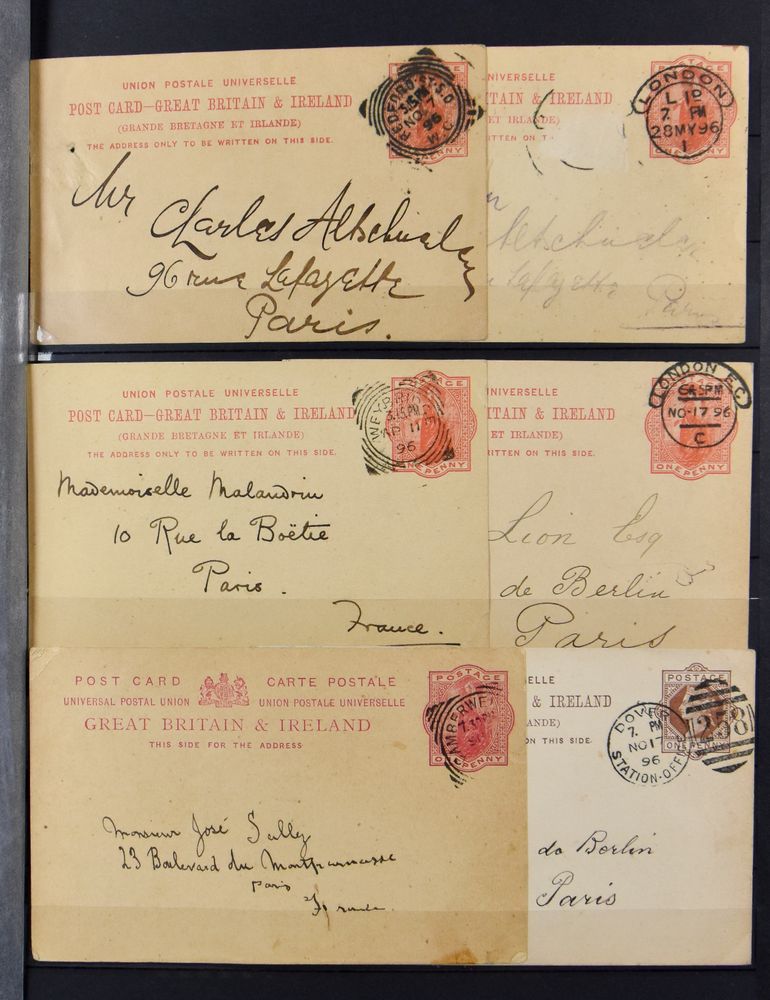 UNION POSTALE UNIVERSELLE
POST CARD—GREAT BRITAIN & IRELAND
(GRANDE BRETAGNE ET IRLANDE)
THE ADDRESS ONLY TO BE WRITTEN ON THIS SIDE.
BEDFORD ST. S.O.
NO 7
96
W.C.
Mr Charles Altschueler
96 rue Lafayette
Paris.
NIVERSELLE
TAIN & IRELAND
ET IRLANDE)
POSTAGE
LONDON
7 PM
28 MY 96
1
Altschueler
Lafayette
Paris
UNION POSTALE UNIVERSELLE
POST CARD—GREAT BRITAIN & IRELAND
(GRANDE BRETAGNE ET IRLANDE)
THE ADDRESS ONLY TO BE WRITTEN ON THIS SIDE.
POSTAGE
ONE PENNY
3.15 PM
AP 11
96
Mademoiselle Malandrin
10 Rue la Boëtie
Paris.
France.
NIVERSELLE
TAIN & IRELAND
ET IRLANDE)
ITTEN ON THIS SIDE.
ONE PENNY
LONDON E.C
NO 17 96
C
Lion Esq
de Berlin
Paris
POST CARD CARTE POSTALE
UNIVERSAL POSTAL UNION UNION POSTALE UNIVERSELLE
GREAT BRITAIN & IRELAND
THIS SIDE FOR THE ADDRESS
POSTAGE
Monsieur José Sally
23 Boulevard du Montparnasse
Paris
France
SELLE
& IRELAND
ANDE)
ON THIS SIDE.
POSTAGE
ONE PENNY
DOVER
7 PM
NO 17
96
STATION-OFFICE
do Berlin
Paris